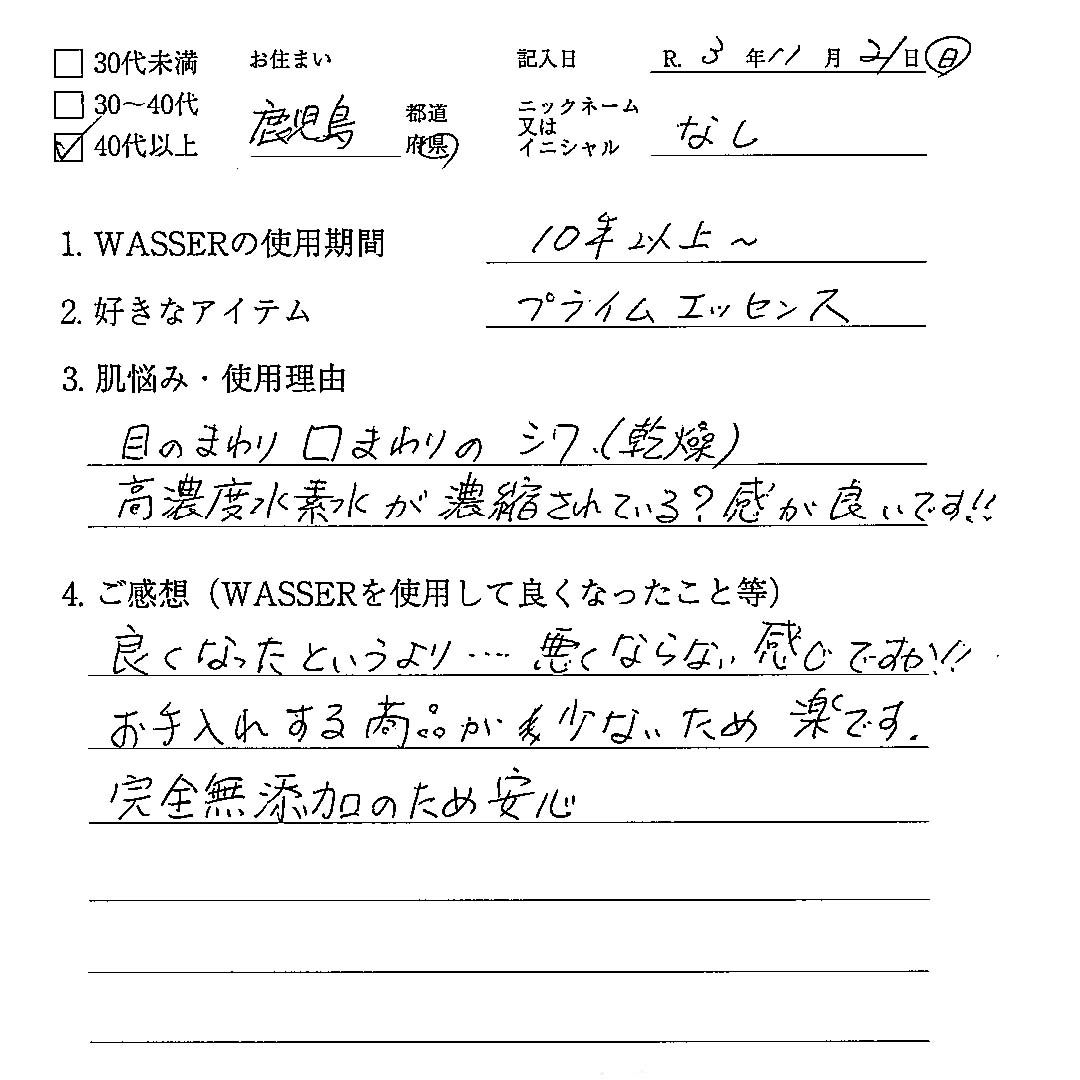 □ 30代未満 お住まい 記入日 R. 3 年 11 月 21 日 (日)
□ 30～40代 鹿児島 都道府県 ニックネーム又はイニシャル なし
☑ 40代以上
1. WASSERの使用期間 10年以上～
2. 好きなアイテム プライムエッセンス
3. 肌悩み・使用理由
目のまわり 口まわりの シワ、(乾燥)
高濃度水素水が濃縮されている？感が良いです!!
4. ご感想（WASSERを使用して良くなったこと等）
良くなったというより… 悪くならない感じですか!!
お手入れする商品が少ないため 楽です。
完全無添加のため安心